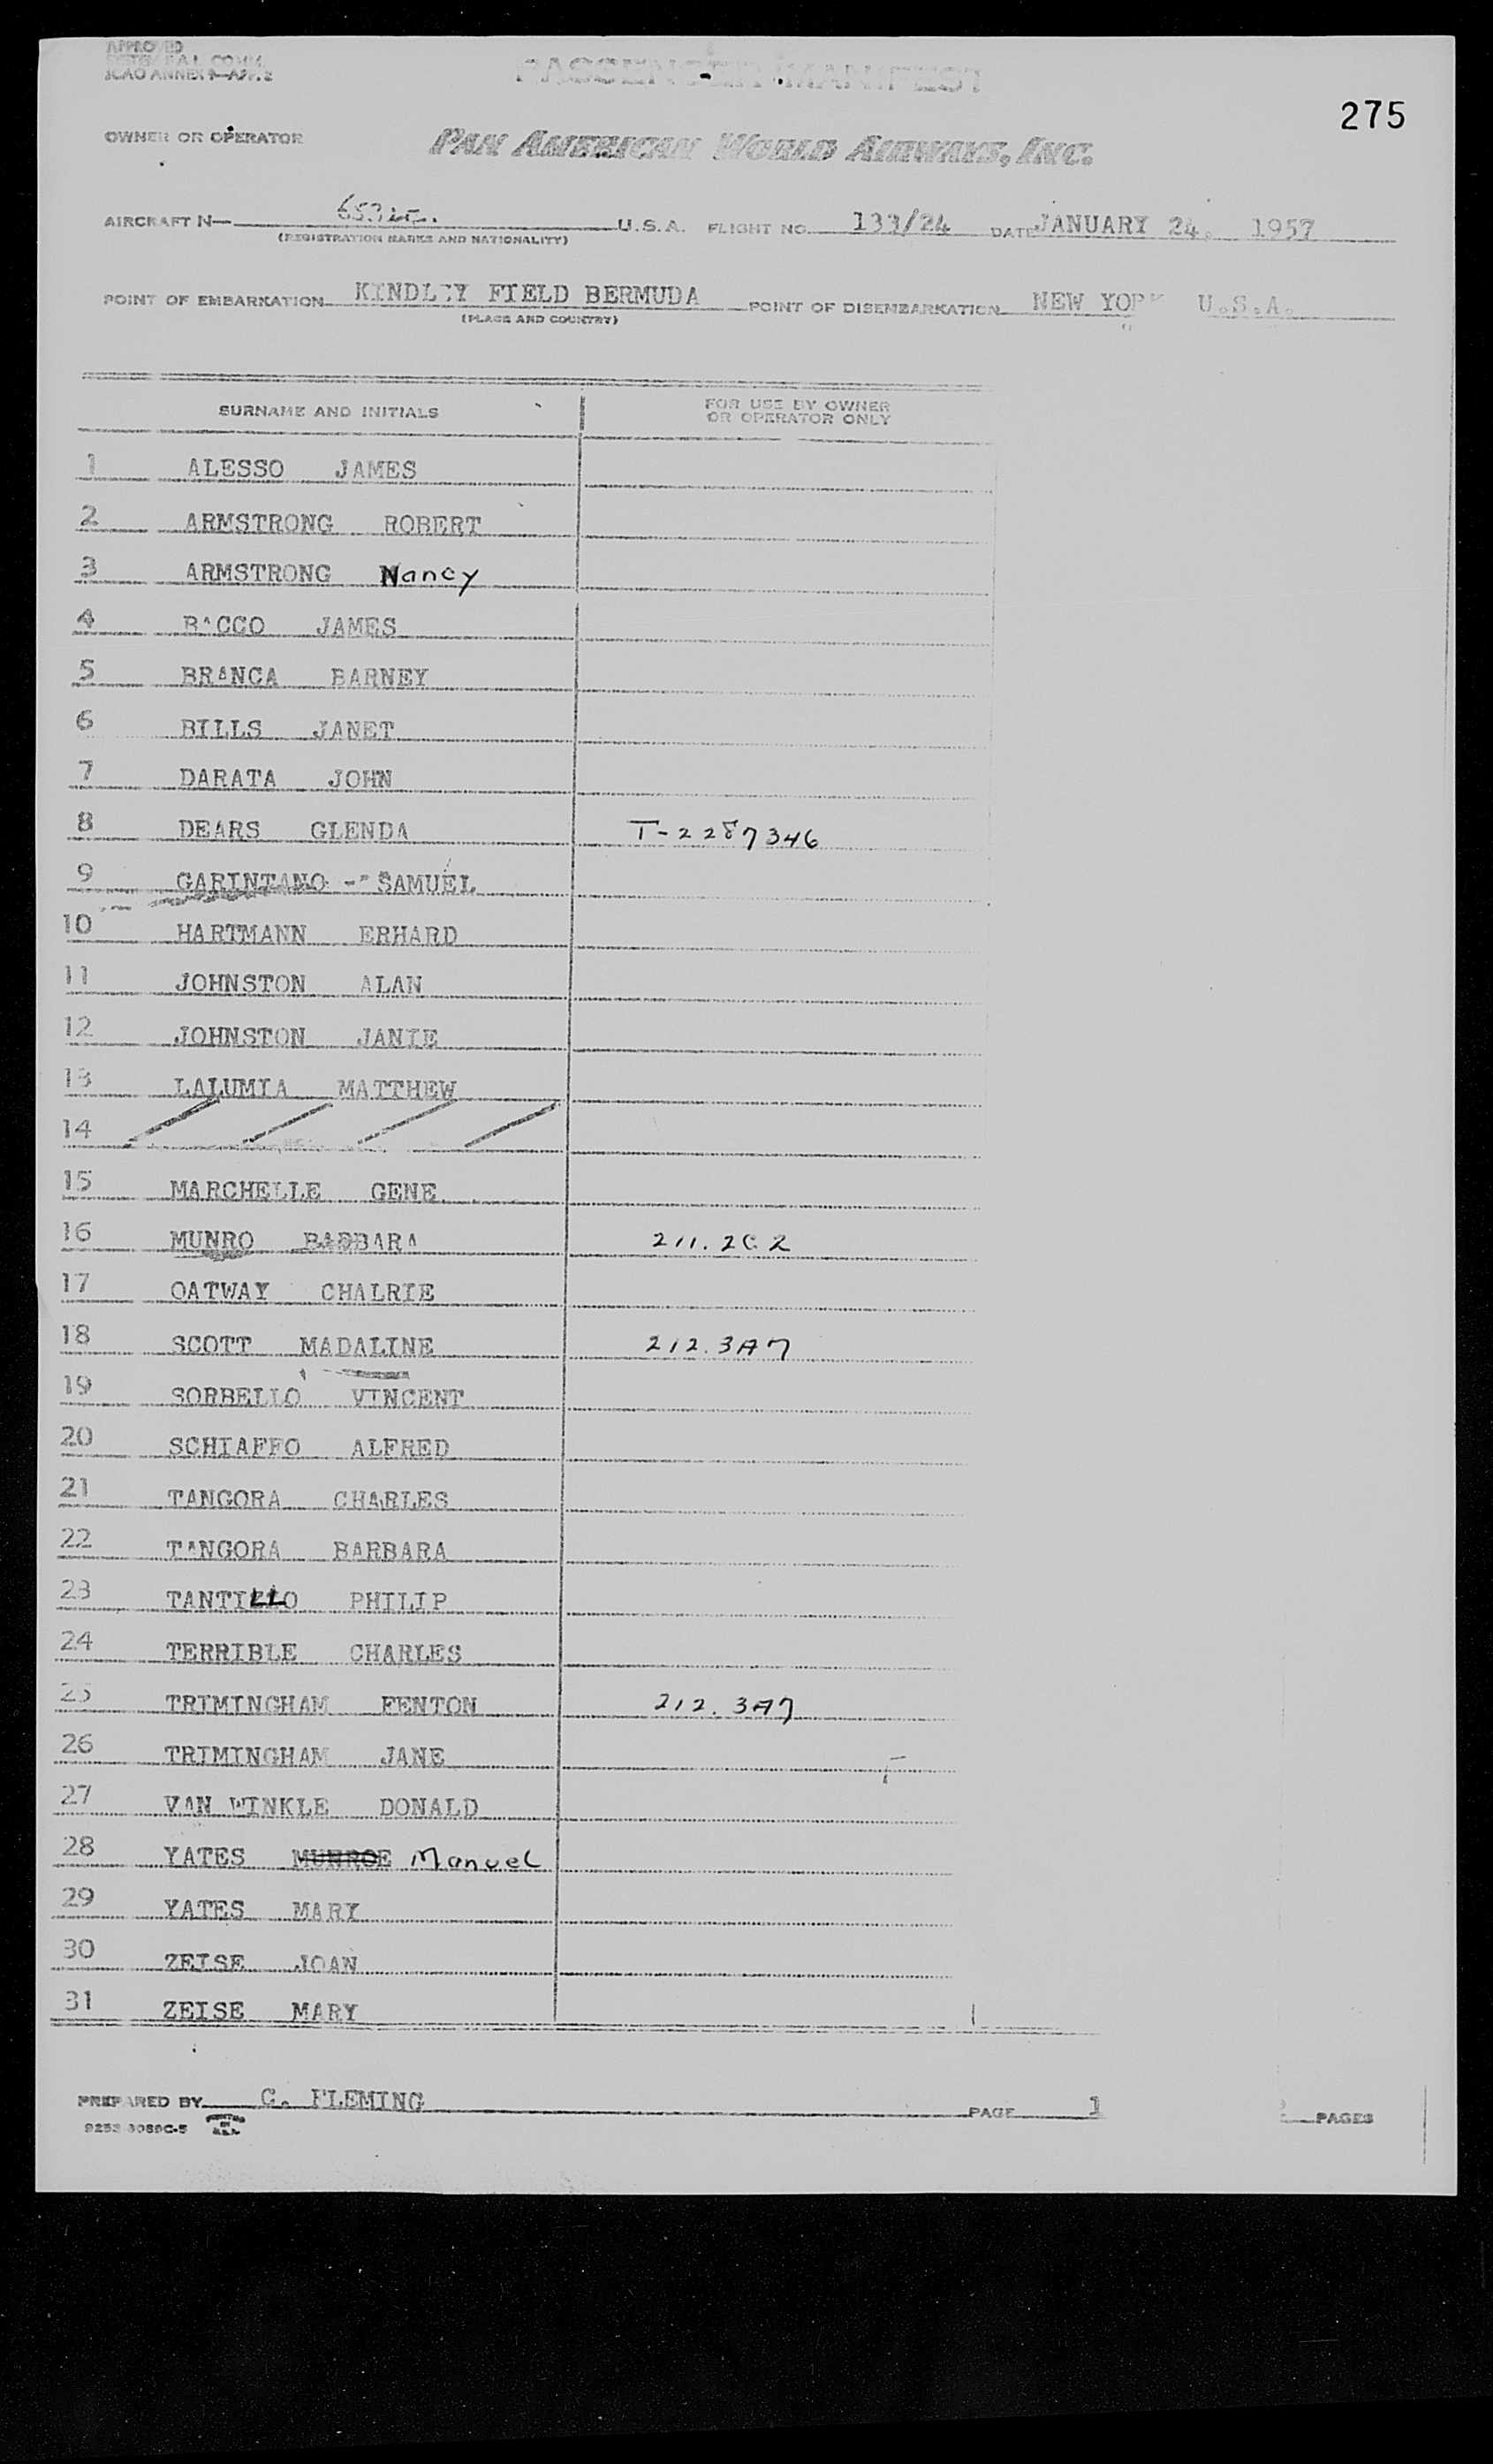 APPROVED
ICAO ANNEX 9—APP. 2
PASSENGER MANIFEST
275
OWNER OR OPERATOR PAN AMERICAN WORLD AIRWAYS, INC.
AIRCRAFT N— U.S.A. FLIGHT NO. 133/24 DATE JANUARY 24, 1957
(REGISTRATION MARKS AND NATIONALITY)
POINT OF EMBARKATION KINDLEY FIELD BERMUDA POINT OF DISEMBARKATION NEW YORK U.S.A.
(PLACE AND COUNTRY)
SURNAME AND INITIALS FOR USE BY OWNER
OR OPERATOR ONLY
1 ALESSO JAMES
2 ARMSTRONG ROBERT
3 ARMSTRONG Nancy
4 BACCO JAMES
5 BRANCA BARNEY
6 BILLS JANET
7 DARATA JOHN
8 DEARS GLENDA T-2287346
9 GARINTANO - SAMUEL
10 HARTMANN ERHARD
11 JOHNSTON ALAN
12 JOHNSTON JANIE
13 LALUMIA MATTHEW
14
15 MARCHELLE GENE
16 MUNRO BARBARA 211.2C2
17 OATWAY CHALRIE
18 SCOTT MADALINE 212.3A7
19 SORBELLO VINCENT
20 SCHIAFFO ALFRED
21 TANGORA CHARLES
22 TANGORA BARBARA
23 TANTILLO PHILIP
24 TERRIBLE CHARLES
25 TRIMINGHAM FENTON 212.3A7
26 TRIMINGHAM JANE
27 VAN WINKLE DONALD
28 YATES MUNROE Manuel
29 YATES MARY
30 ZEISE JOAN
31 ZEISE MARY
PREPARED BY C. FLEMING PAGE 1 PAGES